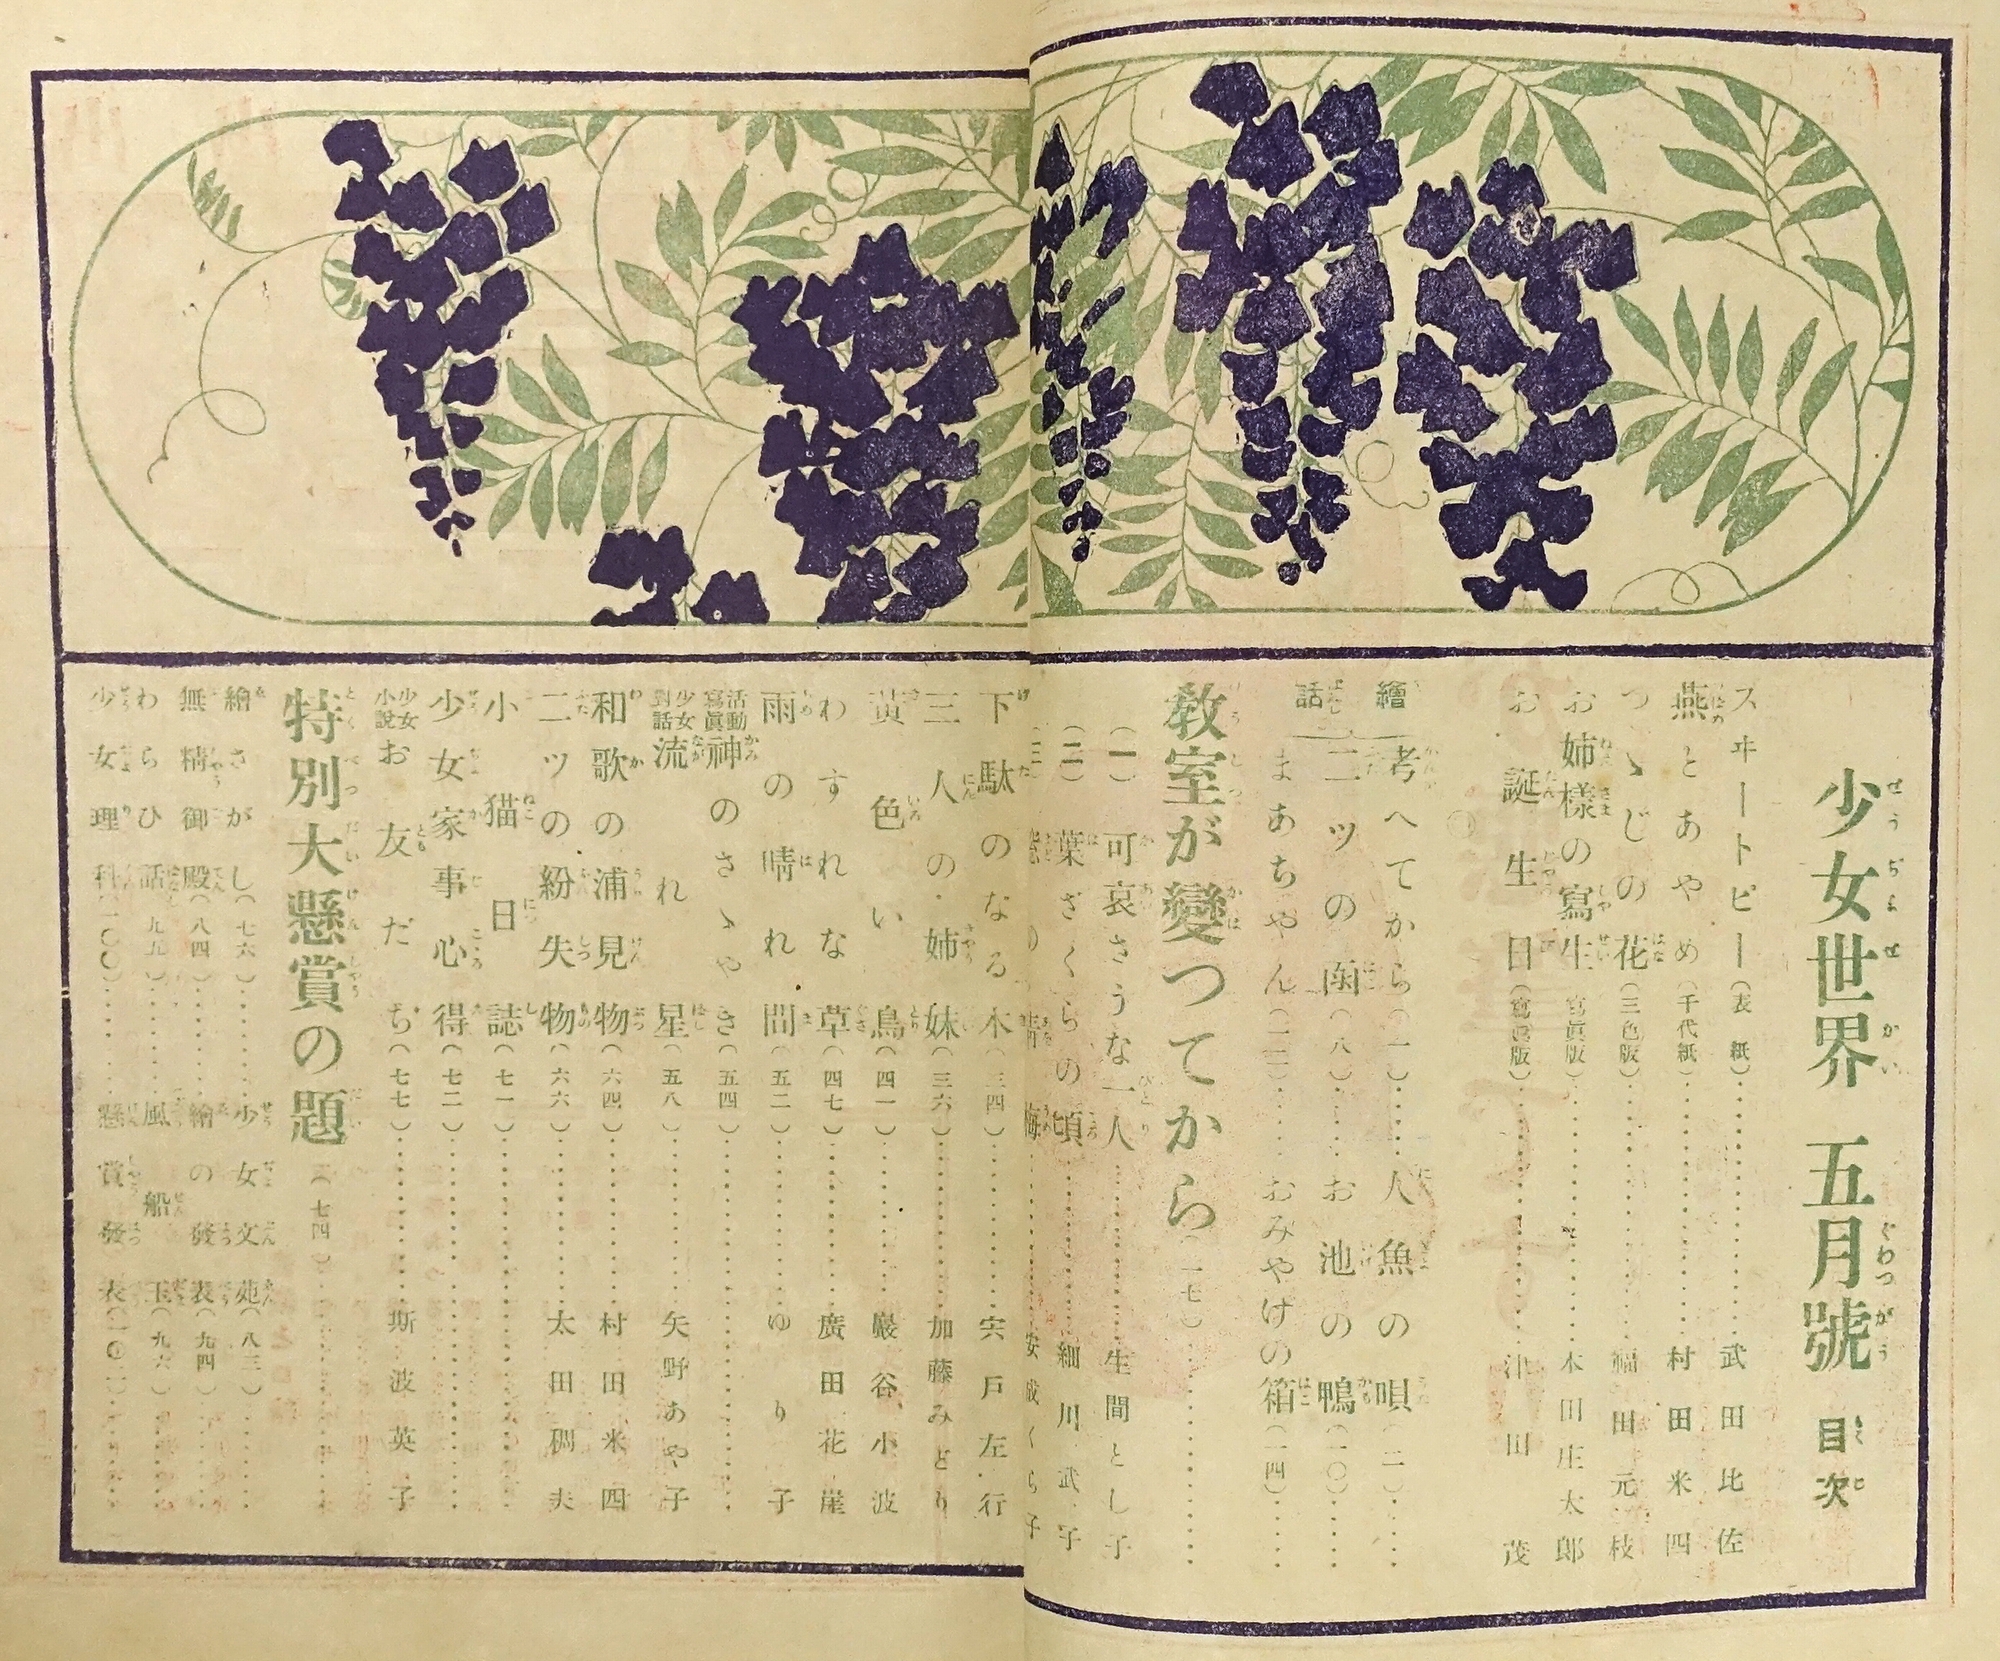 少女世界 五月號 目次
スヰートピー(表紙)…………武田比佐
燕とあやめ(千代紙)…………村田米四
つゝじの花(三色版)…………福田元枝
お姉樣の寫生(寫眞版)…………木田庄太郎
お誕生日(寫眞版)…………津田茂
繪話
考へてから(一)……人魚の唄(二)……
二ツの函(八)……お池の鴨(一〇)……
まあちやん(一三)……おみやげの箱(一四)……
教室が變つてから(一七)…………
(一)可哀さうな一人…………生間とし子
(二)葉ざくらの頃…………細川武子
下駄のなる木(三四)…………宍戸左行
三人の姉妹(三六)…………加藤みどり
黄色い鳥(四一)…………巖谷小波
わすれな草(四七)…………廣田花崖
雨の晴れ間(五二)…………ゆり子
活動寫眞 神のさゝやき(五四)…………
少女對話 流れ星(五八)…………矢野あや子
和歌の浦見物(六四)…………村田米四
二ツの紛失物(六六)…………太田稠夫
小猫日誌(七一)…………
少女家事心得(七二)…………
少女小説 お友だち(七七)…………斯波英子
特別大懸賞の題(七四)…………
繪さがし(七六)…………少女文苑(八三)…………
無精御殿(八四)…………繪の發表(九四)…………
わらひ話(九五)…………風船玉(九六)…………
少女理科(一〇〇)…………懸賞發表